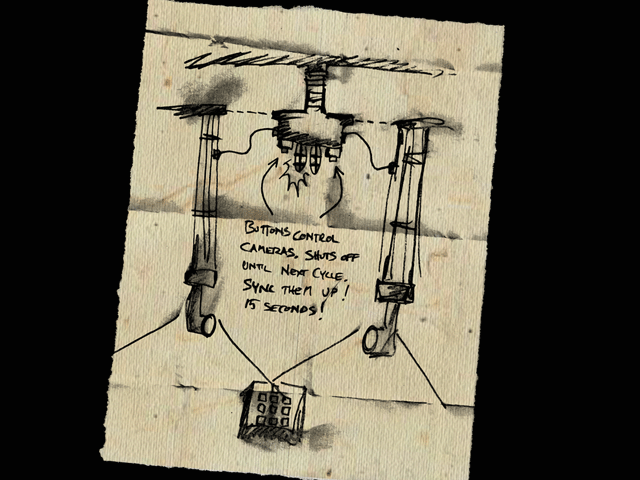 BUTTONS CONTROL
CAMERAS. SHUTS OFF
UNTIL NEXT CYCLE.
SYNC THEM UP!
15 SECONDS!